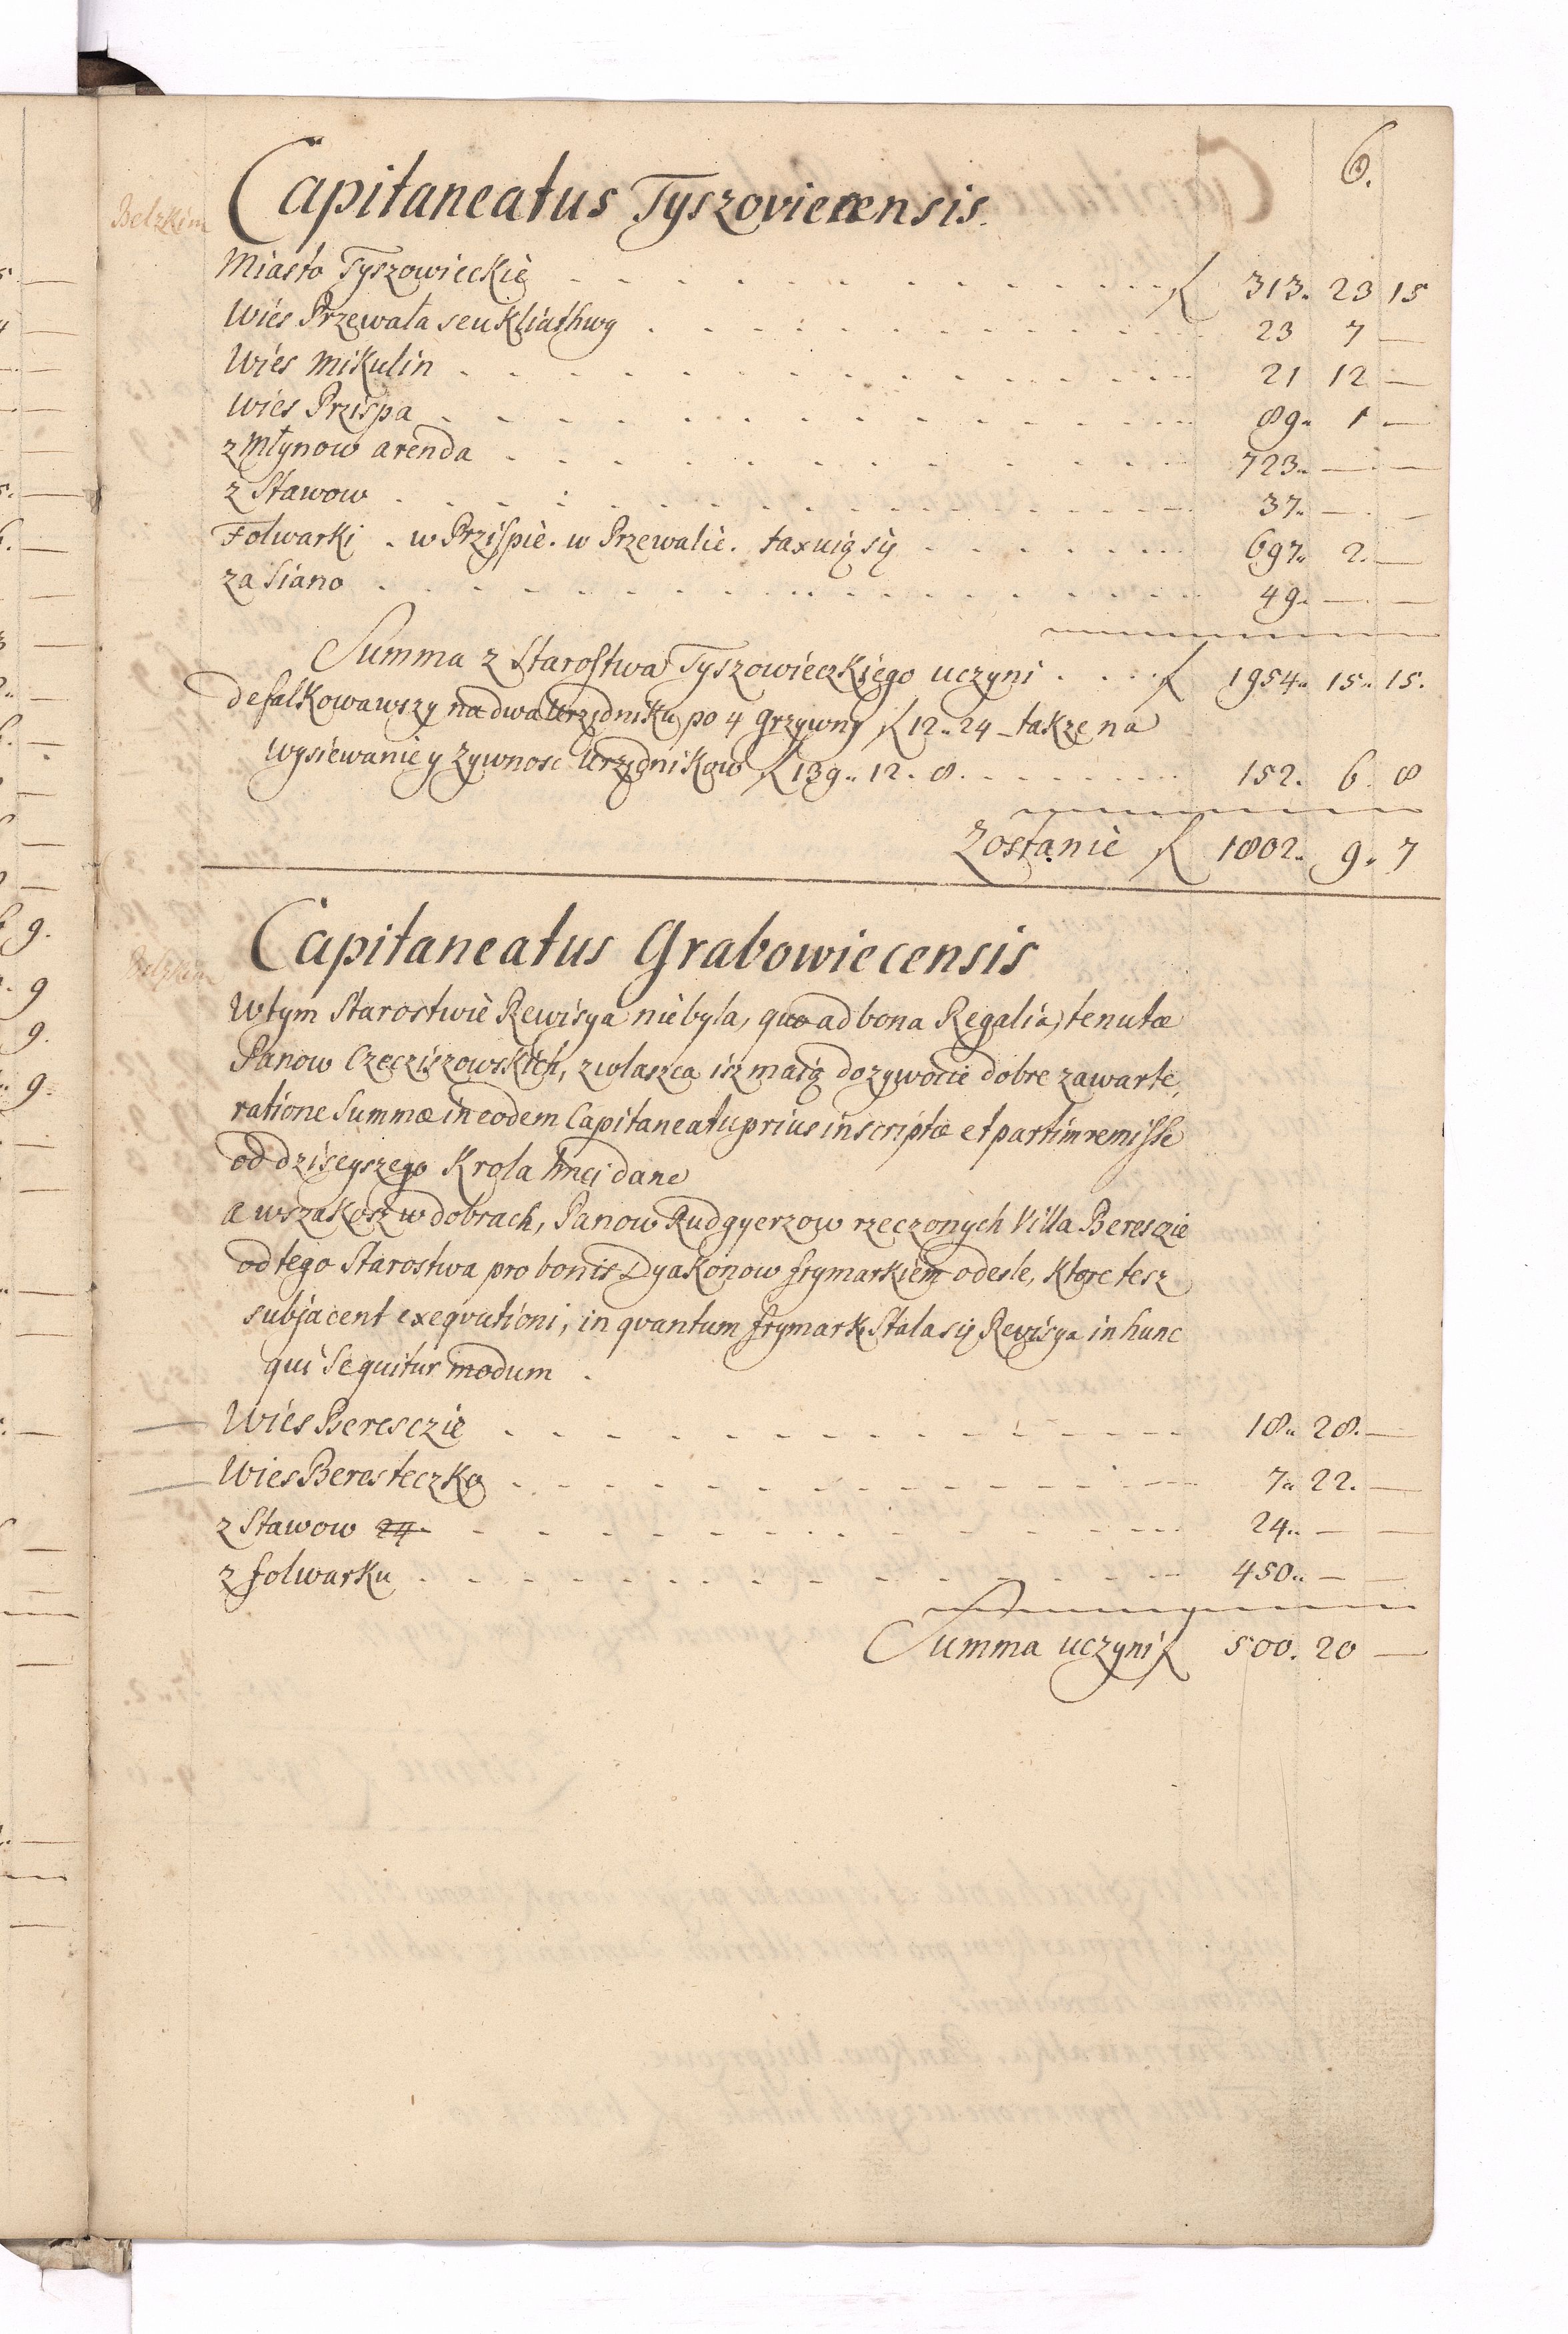 6.
Belzkim
Capitaneatus Tyszoviecensis.
Miasto Tyszowieckie 313. 23 15
Wies Przewala seu Kliathwy 23 7 —
Wies Mikulin 21 12 —
Wies Przispa 89. 1 —
z Młynow arenda 723. — —
z Stawow 37. — —
Folwarki . w Przispie . w Przewalie . taxuią się 697. 2. —
za Siano 49. — —
Summa z Starostwa Tyszowieczkiego uczyni 1954. 15. 15.
defalkowawszy na dwa Urzędniku po 4 grzywny 12. 24 — takze na
wysiewanie y zywnosc Urzędnikow 139. 12. 8. 152. 6. 8
Zostanie 1802. 9. 7
Belzkim
Capitaneatus Grabowiecensis
W tym Starostwie Rewisya nie byla, quo ad bona Regalia, tenutæ
Panow Czecziszowskich, zwlaszca isz maią dozywocie dobre zawarte,
ratione Summæ in eodem Capitaneatu prius inscriptæ et partim remisse
od dzisieyszego Krola Jmci dane
a wszakosz w dobrach, Panow Rudgyerzow rzeczonych Villa Beresczie
od tego Starostwa pro bonis Dyakonow frymarkiem odesle, ktore tesz
subjacent exequutioni, in quantum frymark Stala się Rewisya in hunc
qui Sequitur modum .
Wies Beresczie 18. 28. —
Wies Beresteczko 7. 22. —
z Stawow 24. 24. — —
z folwarku 450. — —
Summa uczyni 500. 20 —